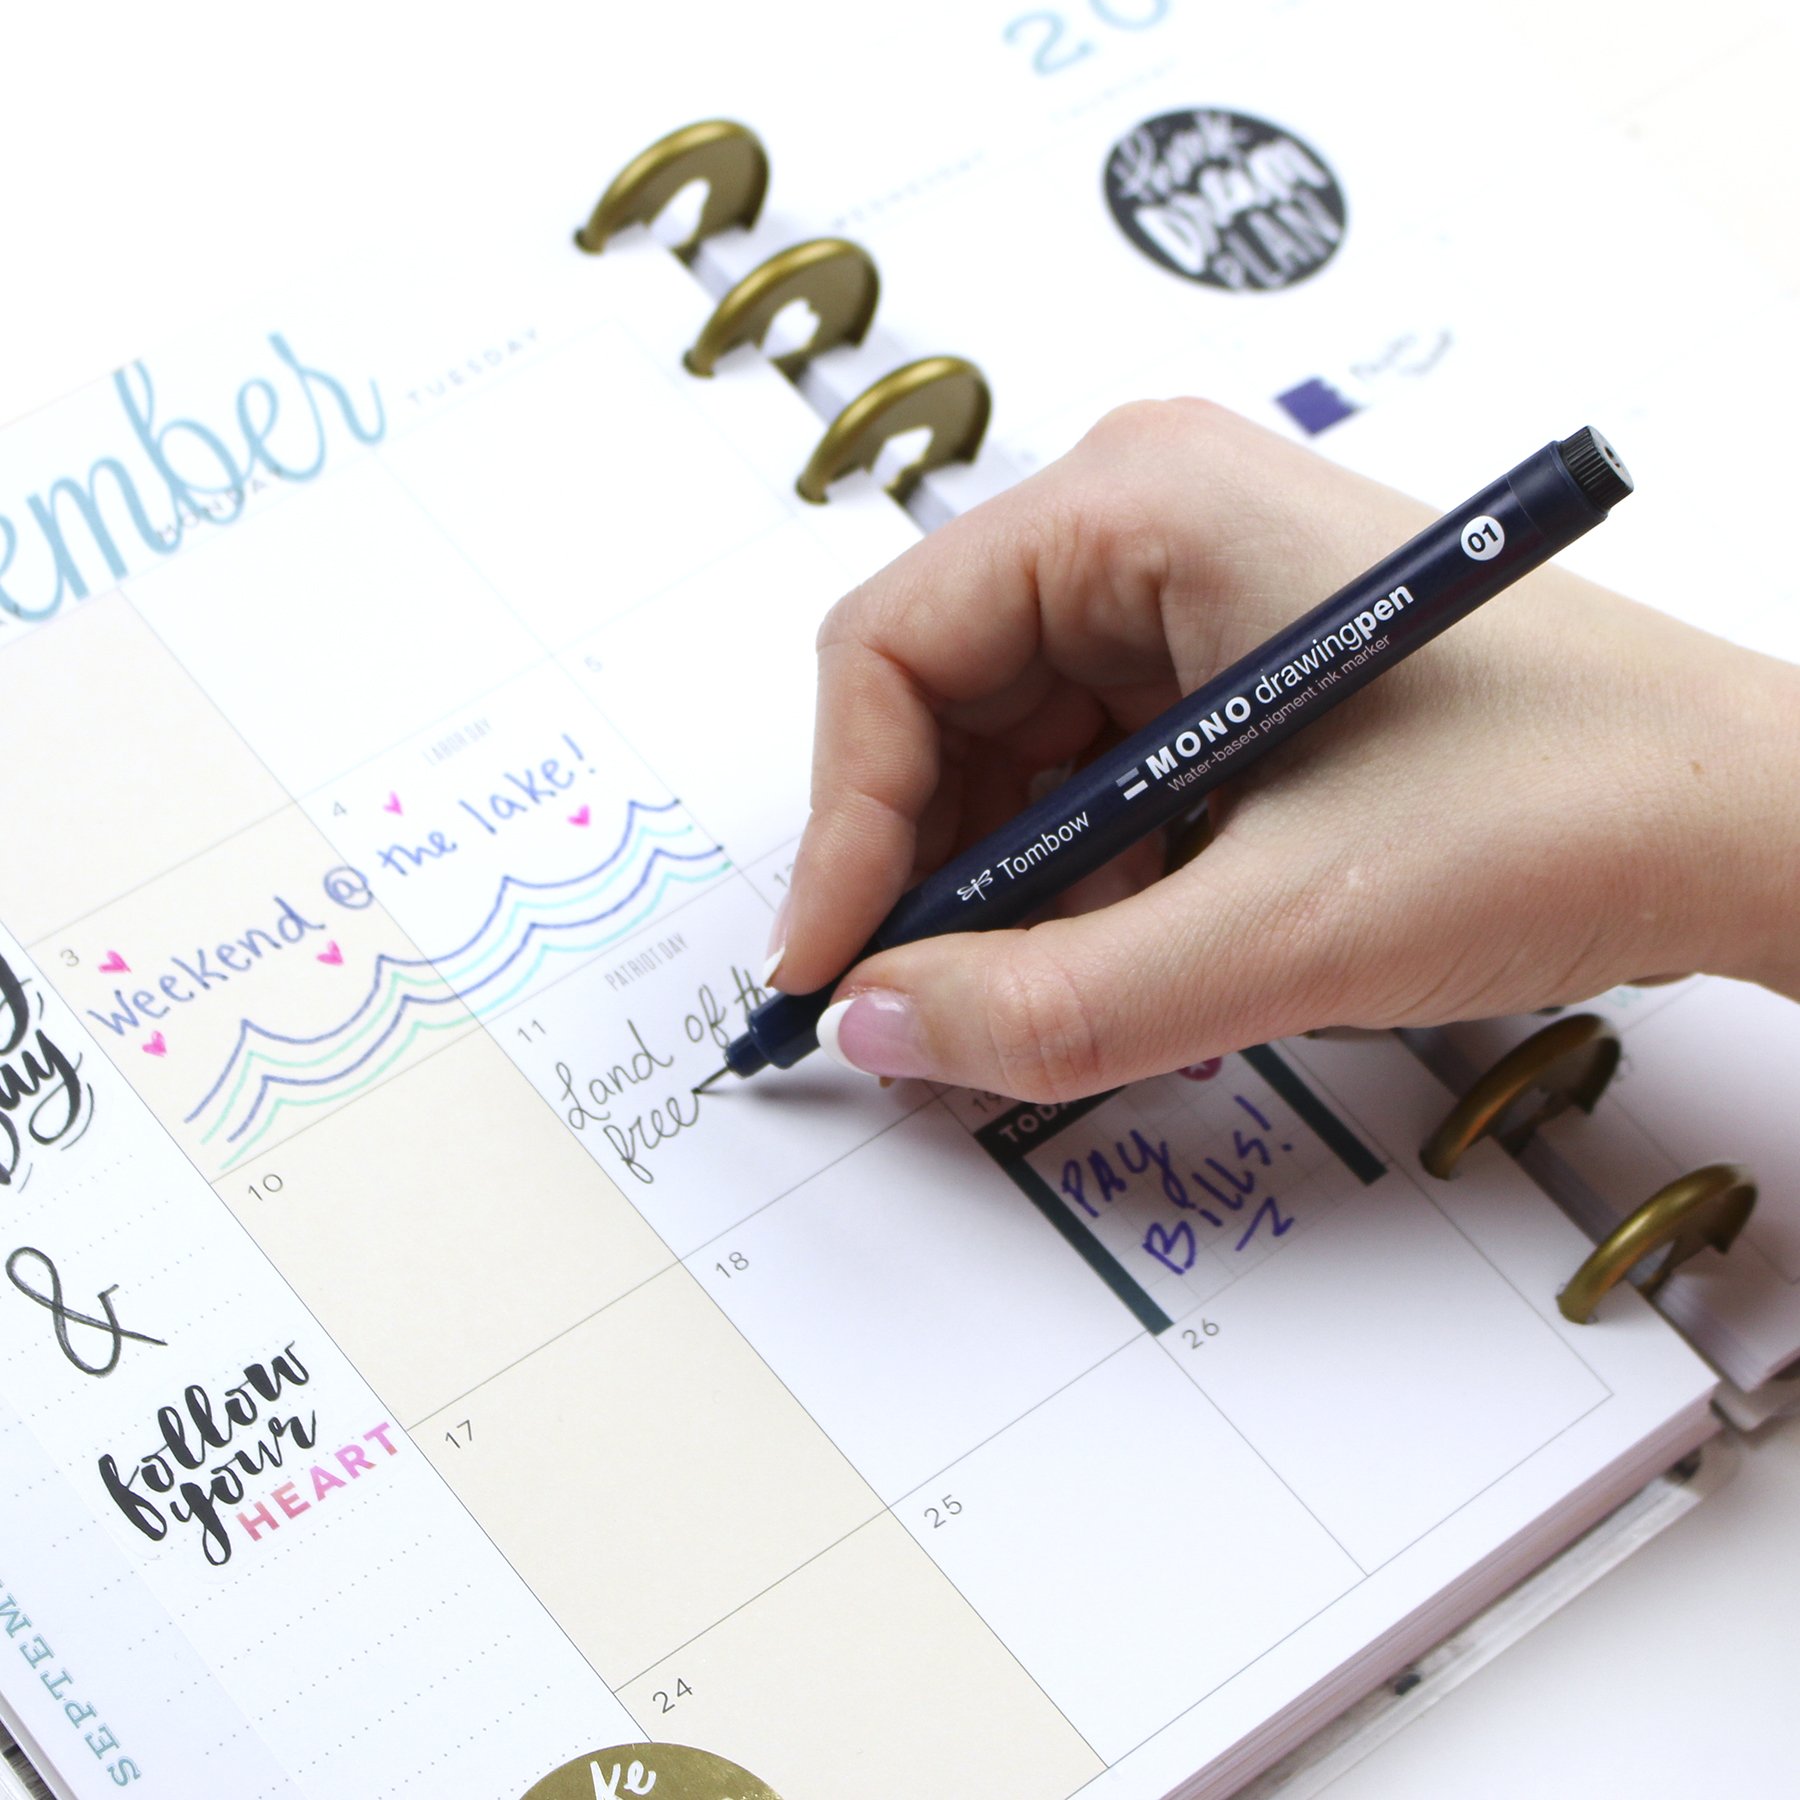 20
think
Dream
PLAN
WEDNESDAY
TUESDAY
ember
MONDAY
5
LABOR DAY
4
3
Weekend @ the lake!
12
PATRIOT DAY
11
Land of th
free
01
MONO drawingpen
Water-based pigment ink marker
Tombow
TODA
PAY
Bills!
10
18
26
17
25
24
&
follow
your
HEART
SEPTEM
ke